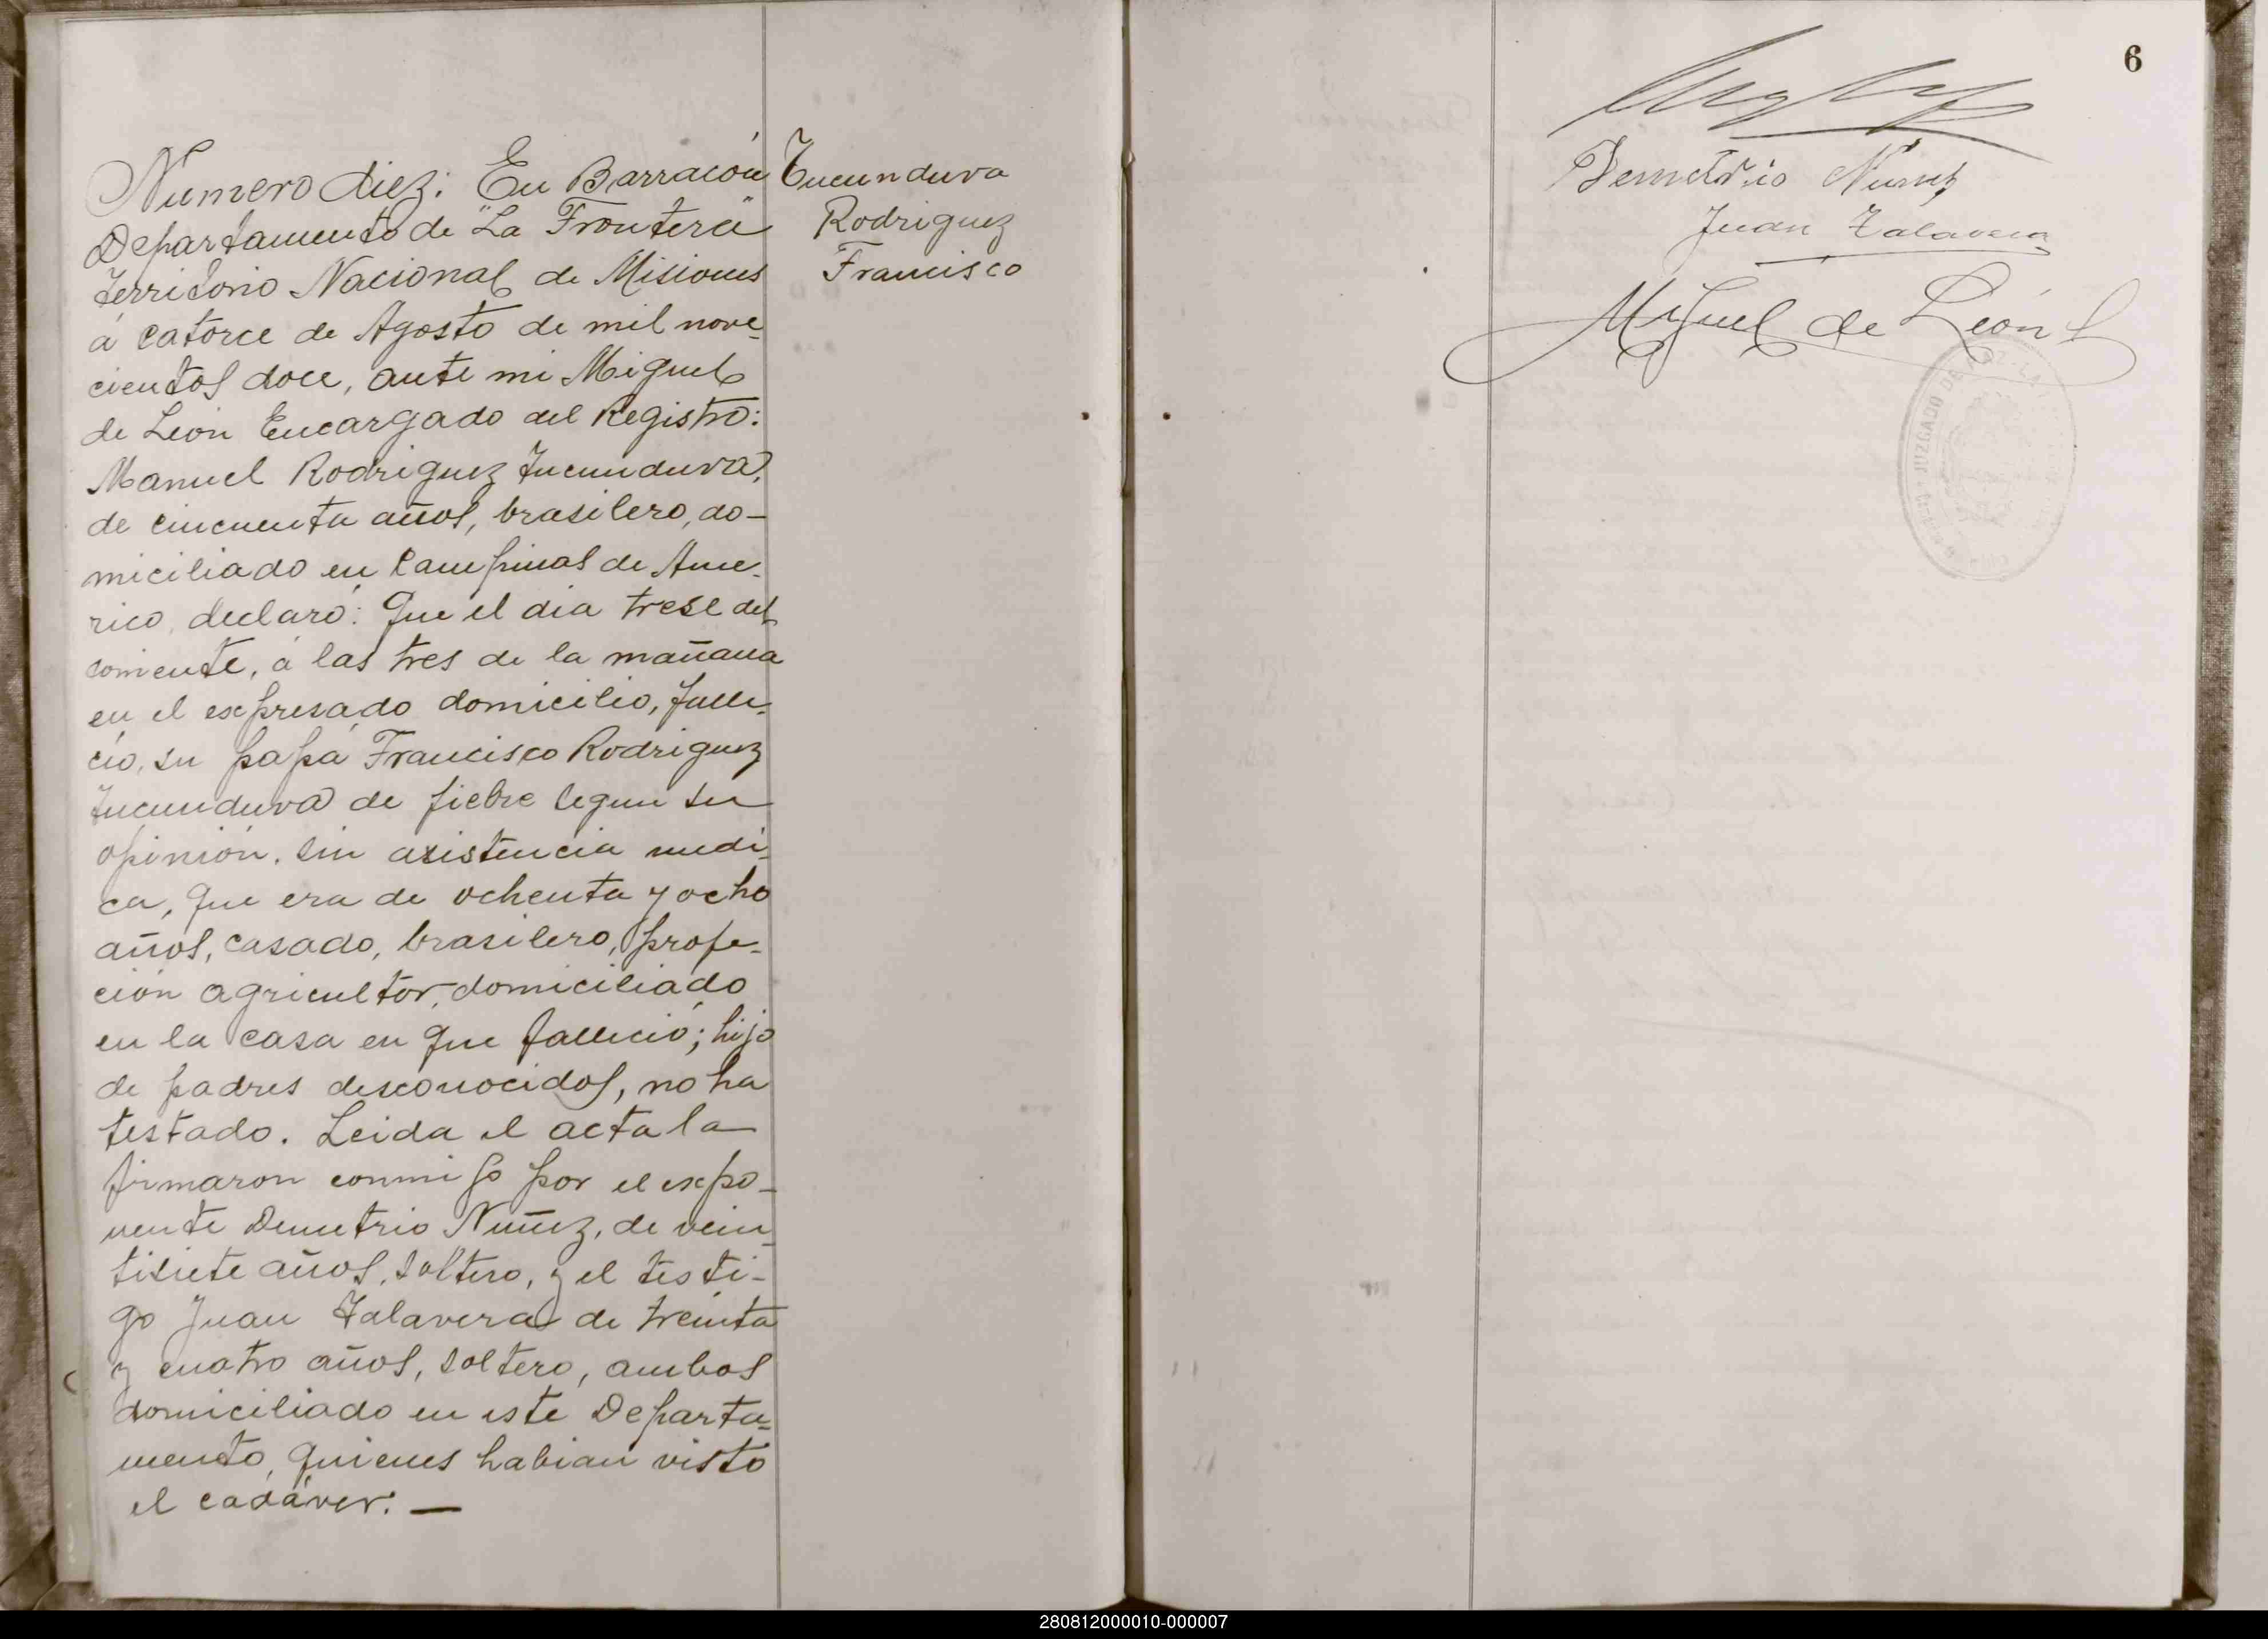 Numero diez: En Barracón
Departamento de "La Frontera"
Territorio Nacional de Misiones
á catorce de Agosto de mil nove=
cientos doce, ante mi Miguel
de León Encargado del Registro:
Manuel Rodriguez Tucunduva,
de cincuenta años, brasilero, do-
miciliado en Campinas de Ame-
rico, declaró: Que el dia trese del
corriente, á las tres de la mañana
en el expresado domicilio, falle-
ció, su papá Francisco Rodriguez
Tucunduva de fiebre segun su
opinión, sin asistencia medi-
ca, que era de ochenta y ocho
años, casado, brasilero, profe-
ción agricultor, domiciliado
en la casa en que falleció; hijo
de padres desconocidos, no ha
testado. Leida el acta la
firmaron conmigo por el expo-
nente Demetrio Nuñez, de vein-
tisiete años, soltero, y el testi-
go Juan Talavera de treinta
y cuatro años, soltero, ambos
domiciliado en este Departa=
mento, quienes habian visto
el cadáver. —
Tucunduva
Rodriguez
Francisco
6
Demetrio Nuñez
Juan Talavera
Miguel de León
JUZGADO DE PAZ
280812000010-000007